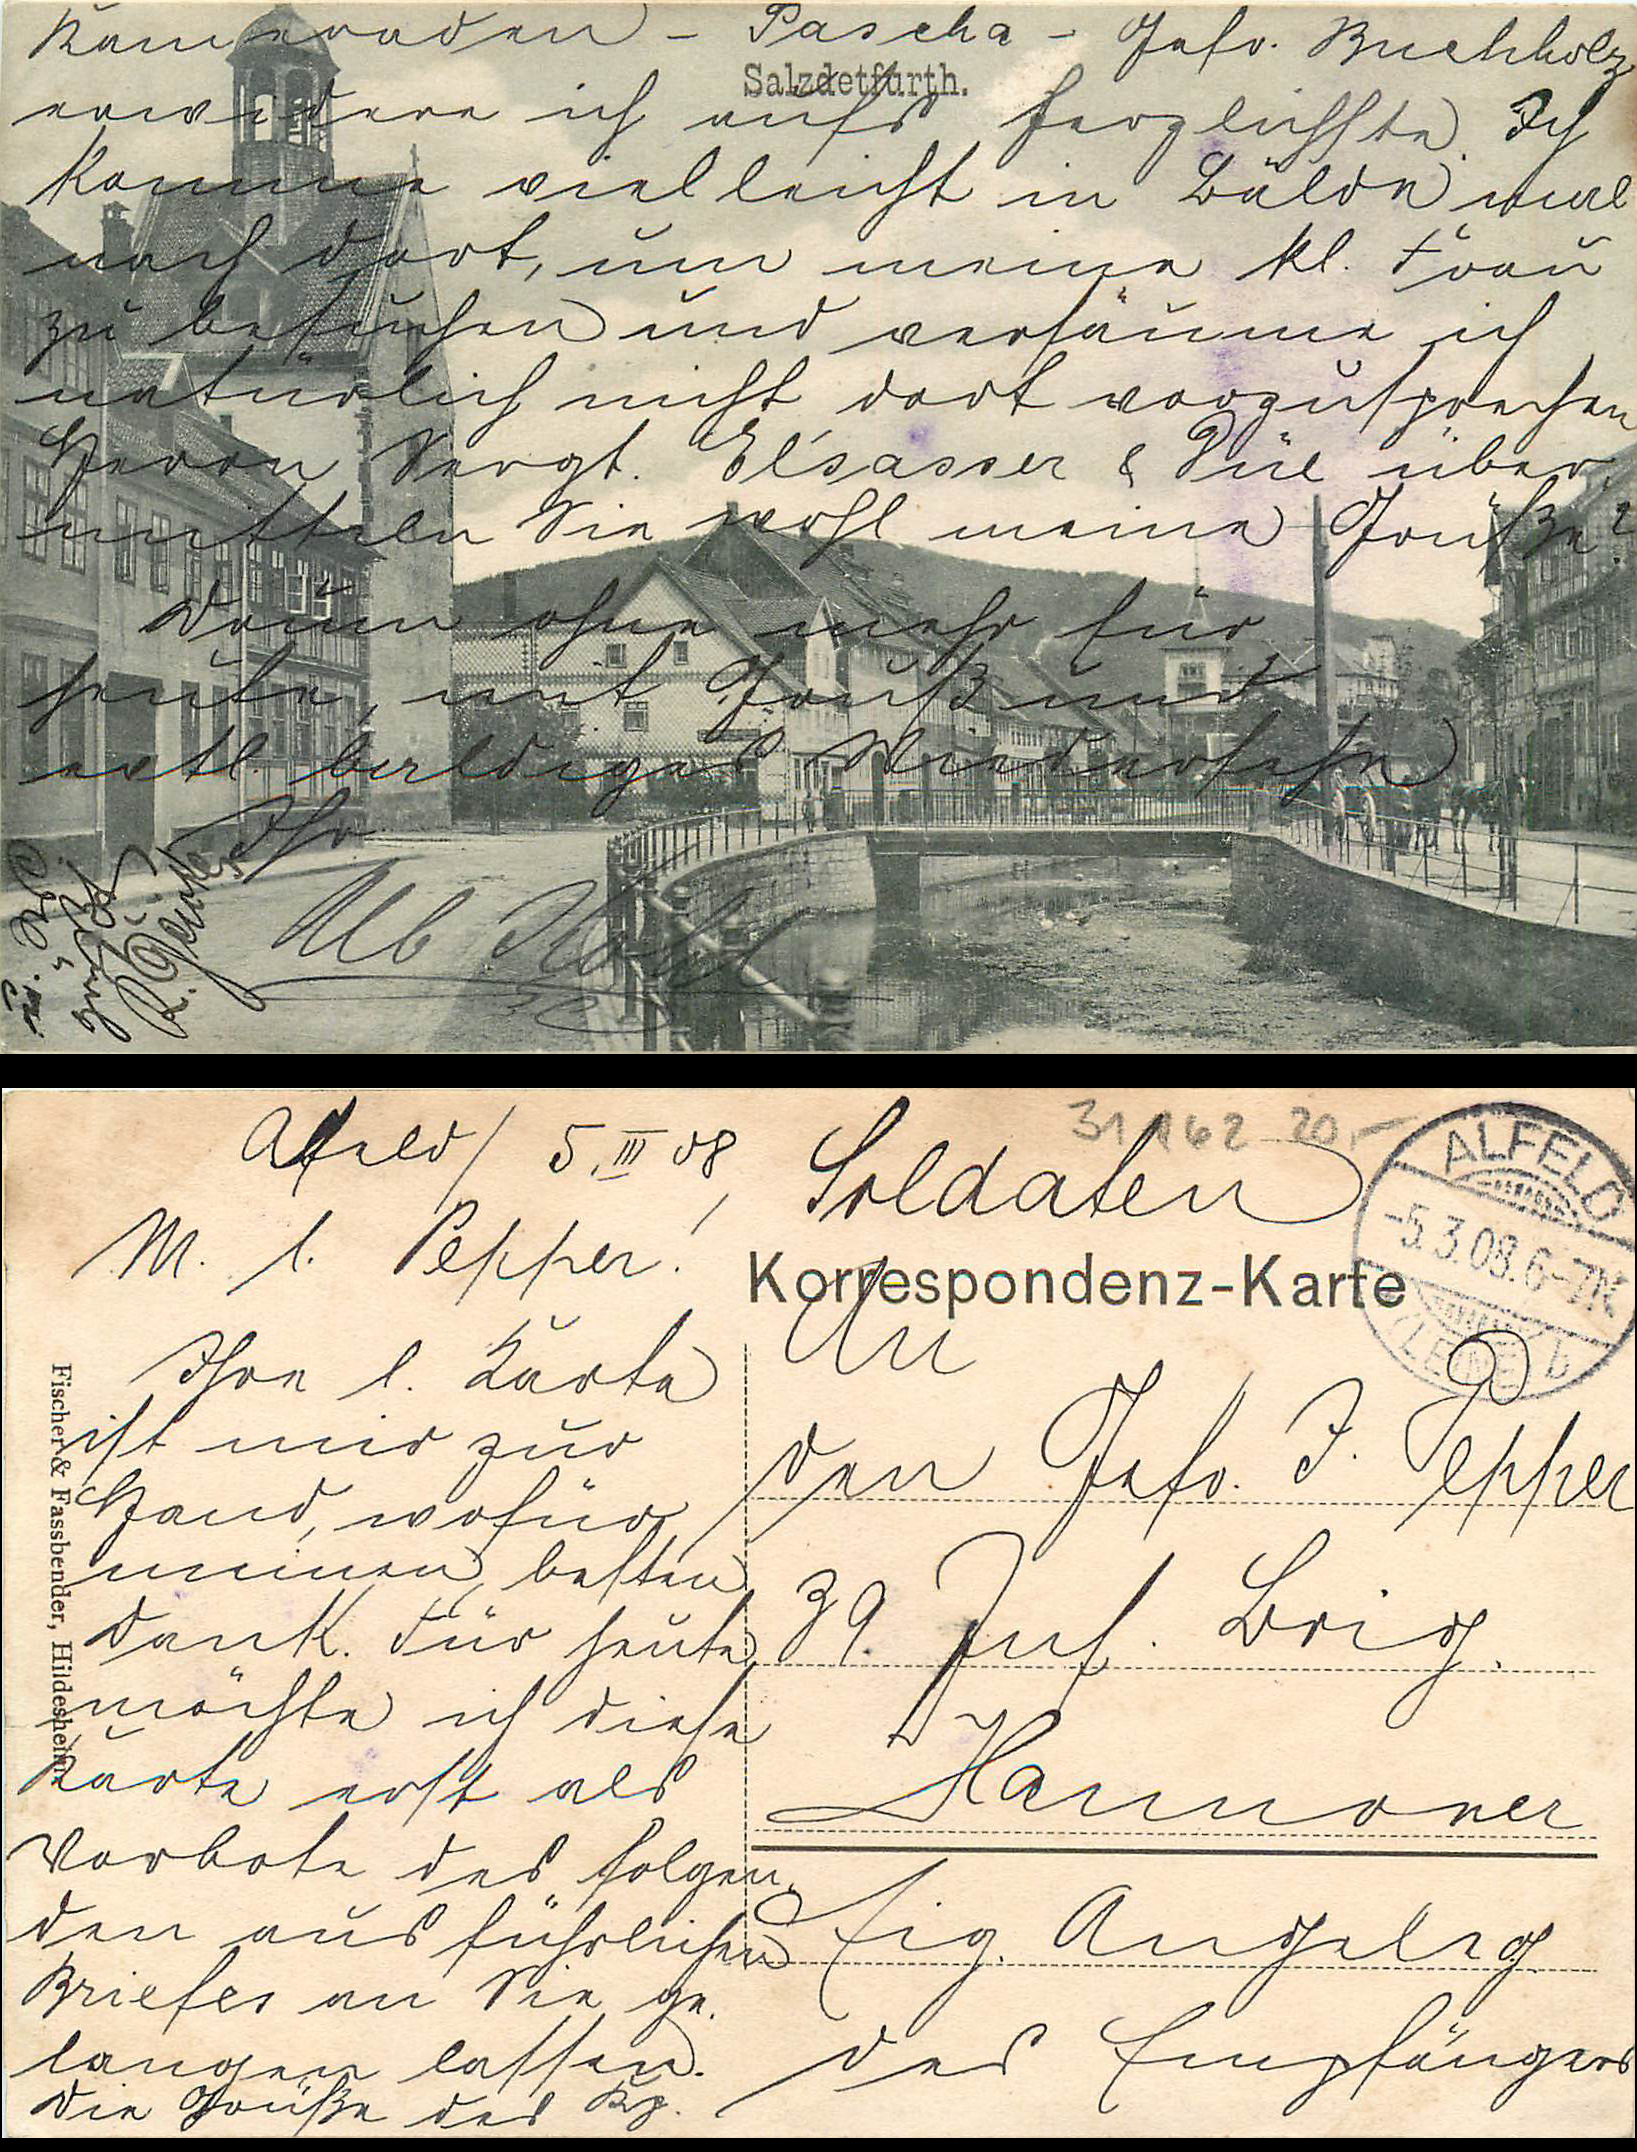 Kameraden – Pascha – Gefr. Buchholz
Salzdetfurth.
erwidere ich aufs herzlichste. Ich
komme vielleicht in Bälde mal
nach dort, um meine kl. Frau
zu besuchen und versäume ich
natürlich nicht dort vorzusprechen
Herrn Sergt. Elsasser & Püil über-
mitteln Sie wohl meine Grüße?
Dann ohne mehr für
heute, mit Gruß und
evtl. baldiges Wiedersehn
Ihr
Alb
Gruß
R.
Alfeld / 5. III 08
M. l. Pepper!
Ihre l. Karte
ist mir zur
Hand, wofür
meinen besten
Dank. Für heute
möchte ich diese
Karte erst als
Vorbote des folgen-
den ausführlichen
Briefes an Sie ge-
langen lassen.
Die Grüße des Kp.
Fischer & Fassbender, Hildesheim.
31162 20,-
Soldaten
Korrespondenz-Karte
ALFELD
-5.3.08.6-7N
(LEINE) b
An
den Gefr. J. Pepper
39. Inf. Brig.
Hannover
Eig. Angeleg.
des Empfängers